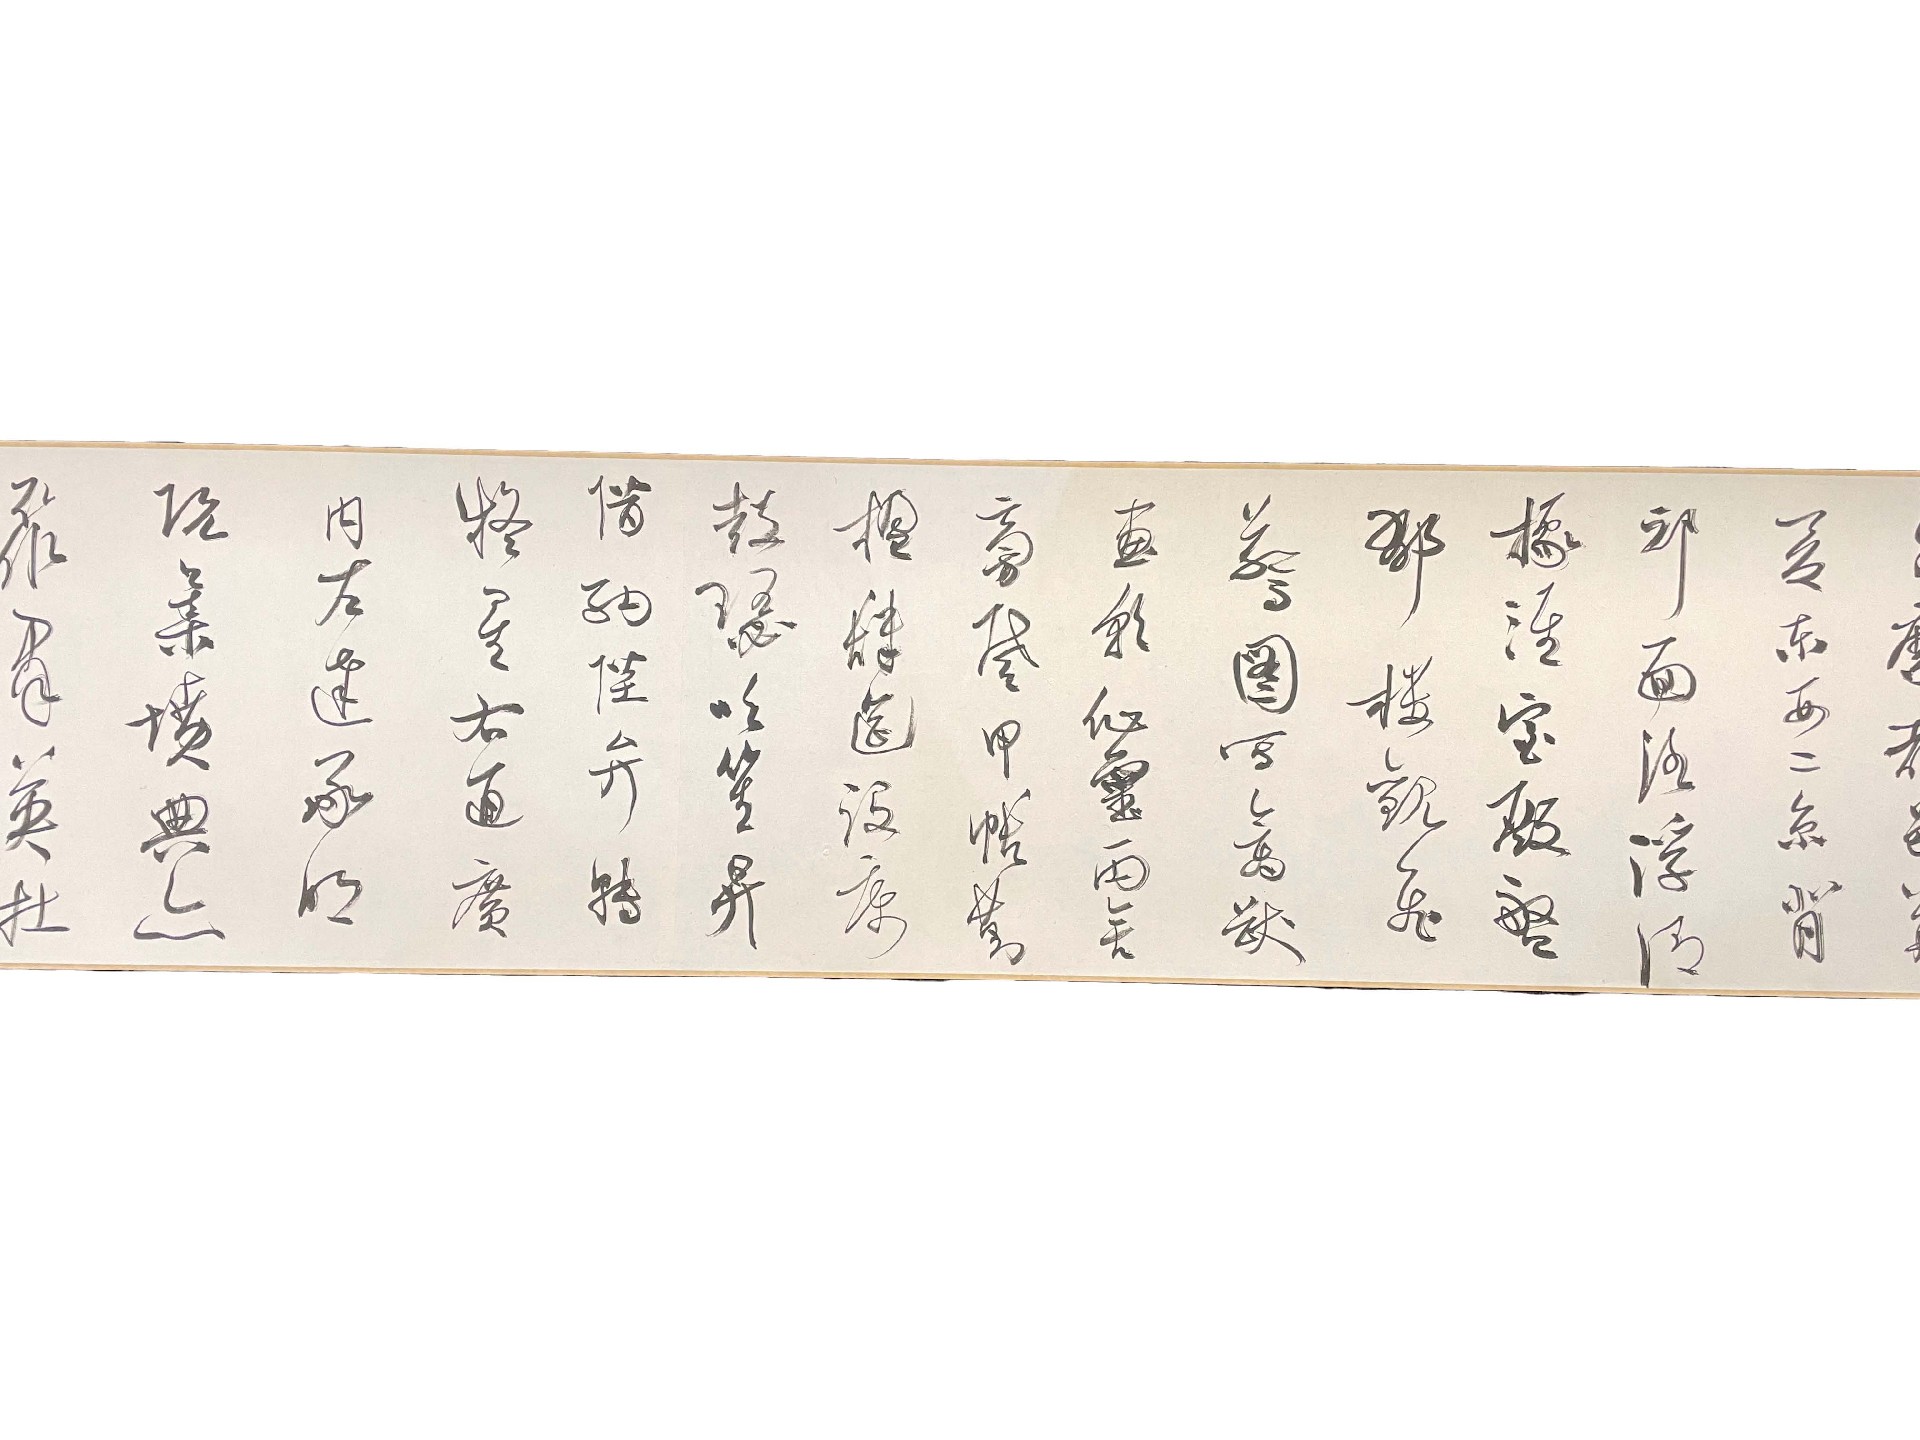 縻都邑華
夏東西二京背
邙面洛浮渭
據涇宮殿盤
鬱樓觀飛
驚圖寫禽獸
畫彩仙靈丙舍
旁啟甲帳對
楹肆筵設席
鼓瑟吹笙昇
階納陛弁轉
疑星右通廣
內左達承明
既集墳典亦
聚群英杜